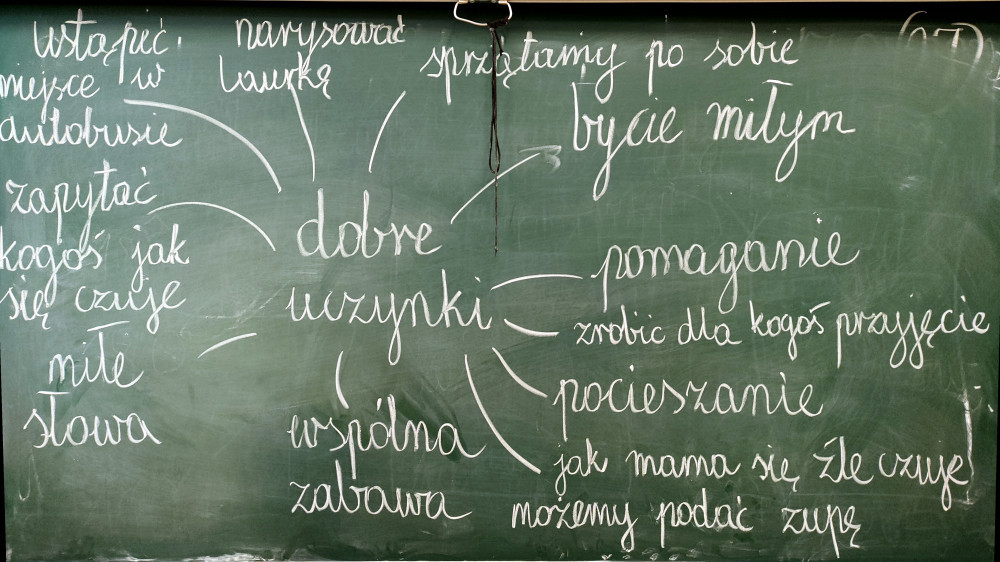 ustąpić
miejsce w
autobusie
narysować
laurkę
sprzątamy po sobie
(27)
bycie miłym
zapytać
kogoś jak
się czuje
dobre
uczynki
pomaganie
zrobić dla kogoś przyjęcie
miłe
słowa
pocieszanie
wspólna
zabawa
jak mama się źle czuje
możemy podać zupę